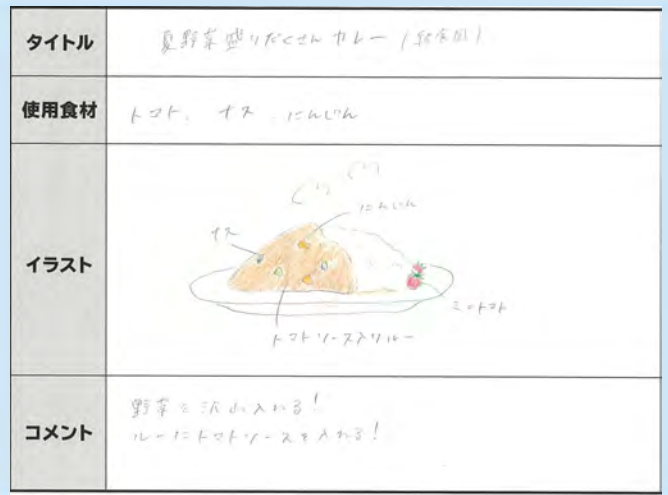 タイトル
夏野菜盛りだくさんカレー
使用食材
トマト、ナス、にんじん
イラスト
にんじん
ナス
ミニトマト
トマトソース入りルー
コメント
野菜を沢山入れる!
ルーにトマトソースを入れる!